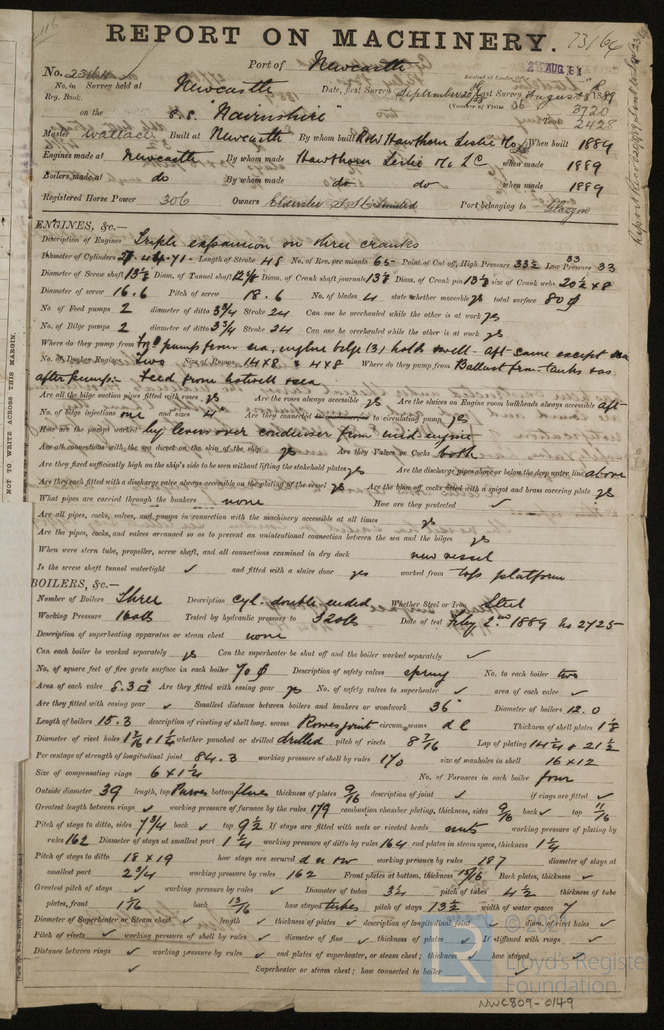 REPORT ON MACHINERY. 23164
Port of Newcastle
No. 23164
No. in Reg. Book. Survey held at Newcastle Date, first Survey September Last Survey August 1889
(Number of Visits 36)
on the S.S. "Nairnshire" Tons 3720 2428
Master Wallace Built at Newcastle By whom built R&W Hawthorn Leslie & Co When built 1889
Engines made at Newcastle By whom made Hawthorn Leslie & Co when made 1889
Boilers made at do By whom made do do when made 1889
Registered Horse Power 306 Owners Elderslie S.S. Co Limited Port belonging to Glasgow
ENGINES, &c.—
Description of Engines Triple expansion on three cranks
Diameter of Cylinders 27. 44. 71. Length of Stroke 48 No. of Rev. per minute 65 Point of Cut off, High Pressure 33½ Low Pressure 33
Diameter of Screw shaft 13½ Diam. of Tunnel shaft 12⅝ Diam. of Crank shaft journals 13½ Diam. of Crank pin 13½ size of Crank webs 20½ x 8
Diameter of screw 16.6 Pitch of screw 18.6 No. of blades 4 state whether moveable yes total surface 80
No. of Feed pumps 2 diameter of ditto 3¾ Stroke 24 Can one be overhauled while the other is at work yes
No. of Bilge pumps 2 diameter of ditto 3¾ Stroke 24 Can one be overhauled while the other is at work yes
Where do they pump from pumps from sea, engine bilge (3) holds & well - Aft same except sea
No. of Donkey Engines Two Size of Pumps 14x8 & 4x8 Where do they pump from Ballast from tanks & as
after pumps. Feed from hotwell & sea
Are all the bilge suction pipes fitted with roses yes Are the roses always accessible yes Are the sluices on Engine room bulkheads always accessible aft
No. of bilge injections one and sizes 4" Are they connected to condenser, or to circulating pump yes
How are the pumps worked by levers over condenser from mid engine
Are all connections with the sea direct on the skin of the ship yes Are they Valves or Cocks both
Are they fixed sufficiently high on the ship's side to be seen without lifting the stokehold plates yes Are the discharge pipes above or below the deep water line above
Are they each fitted with a discharge valve always accessible on the plating of the vessel yes Are the blow off cocks fitted with a spigot and brass covering plate yes
What pipes are carried through the bunkers none How are they protected ✓
Are all pipes, cocks, valves, and pumps in connection with the machinery accessible at all times yes
Are the pipes, cocks, and valves arranged so as to prevent an unintentional connection between the sea and the bilges yes
When were stern tube, propeller, screw shaft, and all connections examined in dry dock new vessel
Is the screw shaft tunnel watertight ✓ and fitted with a sluice door yes worked from top platform
BOILERS, &c.—
Number of Boilers Three Description Cyl. double ended Whether Steel or Iron Steel
Working Pressure 160 lbs Tested by hydraulic pressure to 320 lbs Date of test Feby 2nd 1889 No 2725
Description of superheating apparatus or steam chest none
Can each boiler be worked separately yes Can the superheater be shut off and the boiler worked separately ✓
No. of square feet of fire grate surface in each boiler 70 Description of safety valves spring No. to each boiler two
Area of each valve 8.3 Are they fitted with easing gear yes No. of safety valves to superheater ✓ area of each valve ✓
Are they fitted with easing gear ✓ Smallest distance between boilers and bunkers or woodwork 36" Diameter of boilers 12.0
Length of boilers 15.3 description of riveting of shell long. seams circum. seams d l Thickness of shell plates 1⅛
Diameter of rivet holes whether punched or drilled drilled pitch of rivets 8 Lap of plating
Per centage of strength of longitudinal joint 84.3 working pressure of shell by rules 170 size of manholes in shell 16 x 12
Size of compensating rings 6 x 1¼ No. of Furnaces in each boiler four
Outside diameter 39 length, top Purves bottom flues thickness of plates 9/16 description of joint ✓ if rings are fitted ✓
Greatest length between rings ✓ working pressure of furnace by the rules 179 combustion chamber plating, thickness, sides 9/16 back ✓ top 11/16
Pitch of stays to ditto, sides 7¾ back ✓ top 9½ If stays are fitted with nuts or riveted heads nuts working pressure of plating by
rules 162 Diameter of stays at smallest part 1¼ working pressure of ditto by rules 164 end plates in steam space, thickness 1¼
Pitch of stays to ditto 18 x 19 how stays are secured d n & w working pressure by rules 187 diameter of stays at
smallest part 2¾ working pressure by rules 162 Front plates at bottom, thickness 13/16 Back plates, thickness ✓
Greatest pitch of stays ✓ working pressure by rules ✓ Diameter of tubes 3¼ pitch of tubes 4½ thickness of tube
plates, front back 13/16 how stayed tubes pitch of stays 13½ width of water spaces 7
Diameter of Superheater or Steam chest ✓ length ✓ thickness of plates ✓ description of longitudinal joint ✓ diam. of rivet holes ✓
Pitch of rivets ✓ working pressure of shell by rules ✓ diameter of flue ✓ thickness of plates ✓ If stiffened with rings ✓
Distance between rings ✓ working pressure by rules ✓ end plates of superheater, or steam chest; thickness how stayed ✓
✓ Superheater or steam chest; how connected to boiler ✓
NOT TO WRITE ACROSS THIS MARGIN.
LR
Lloyd's Register
Foundation
NWC809-0149